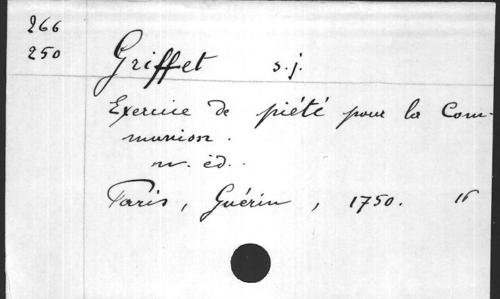 266
250
Griffet s.j.
Exercice de piété pour la Com-
munion.
n. éd..
Paris, Guérin, 1750. 16